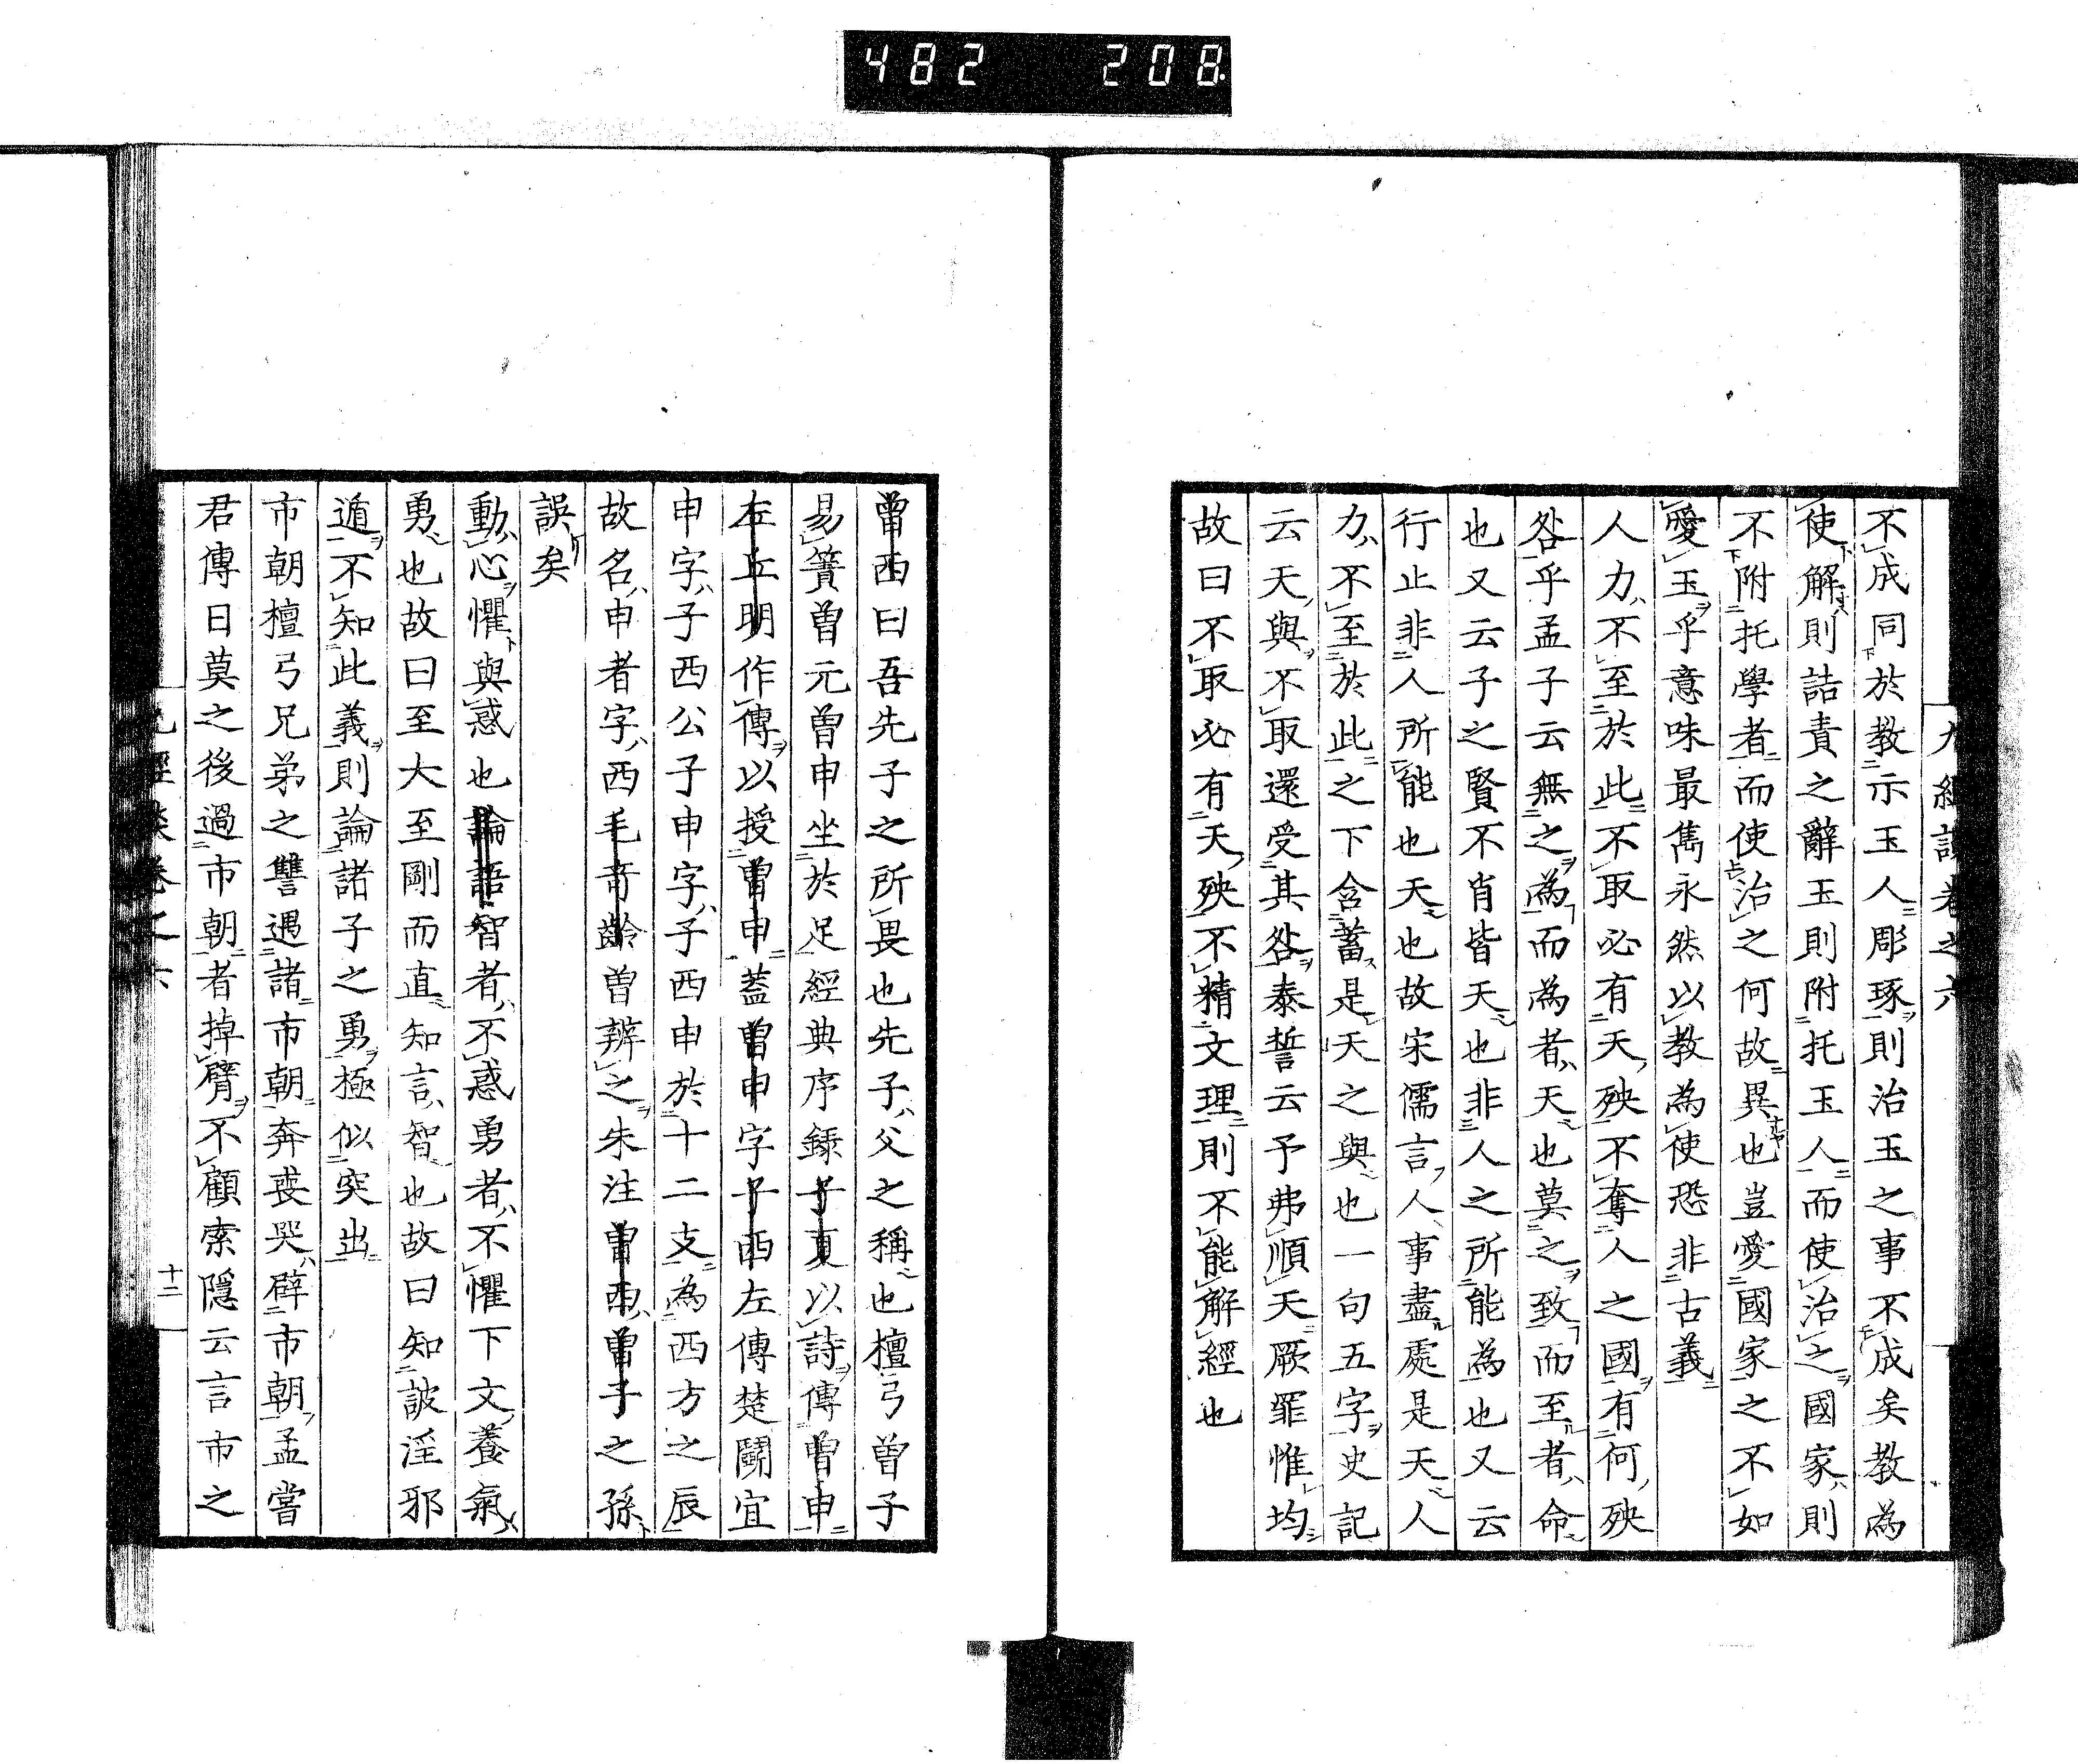 482 208
九經談卷之六
不成同於教示玉人彫琢則治玉之事不成矣教為
使解則詰責之辭玉則附托玉人而使治之國家則
不附托學者而使治之何故異也豈愛國家之不如
愛玉乎意味最雋永然以教為使恐非古義
人力不至於此不取必有天殃不奪人之國有何殃
咎乎孟子云無之為而為者天也莫之致而至者命
也又云子之賢不肖皆天也非人之所能為也又云
行止非人所能也天也故宋儒言人事盡處是天人
力不至於此之下含蓄是天之與也一句五字史記
云天與不取還受其咎泰誓云予弗順天厥罪惟均
故曰不取必有天殃不精文理則不能解經也
曾西曰吾先子之所畏也先子父之稱也檀弓曾子
易簀曾元曾申坐於足經典序錄子夏以詩傳曾申
左丘明作傳以授曾申蓋曾申字子西左傳楚鬬宜
申字子西公子申字子西申於十二支為西方之辰
故名申者字西毛奇齡曾辨之朱注曾西曾子之孫
誤矣
動心懼與惑也論語智者不惑勇者不懼下文養氣
勇也故曰至大至剛而直知言智也故曰知詖淫邪
遁不知此義則論諸子之勇極似突出
市朝檀弓兄弟之讐遇諸市朝奔喪哭辟市朝孟嘗
君傳日莫之後過市朝者掉臂不顧索隱云言市之
九經談卷之六
十二